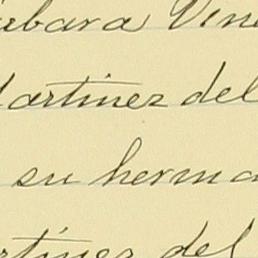 arbara Vine
Martinez del
su herma
artinez del